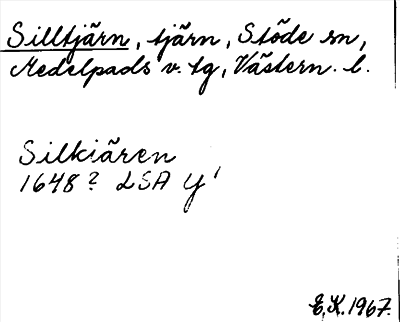 Silltjärn, tjärn, Stöde sn,
Medelpads v. tg, Västern. l.
Silkiären
1648? LSA Y¹
E.K. 1967.